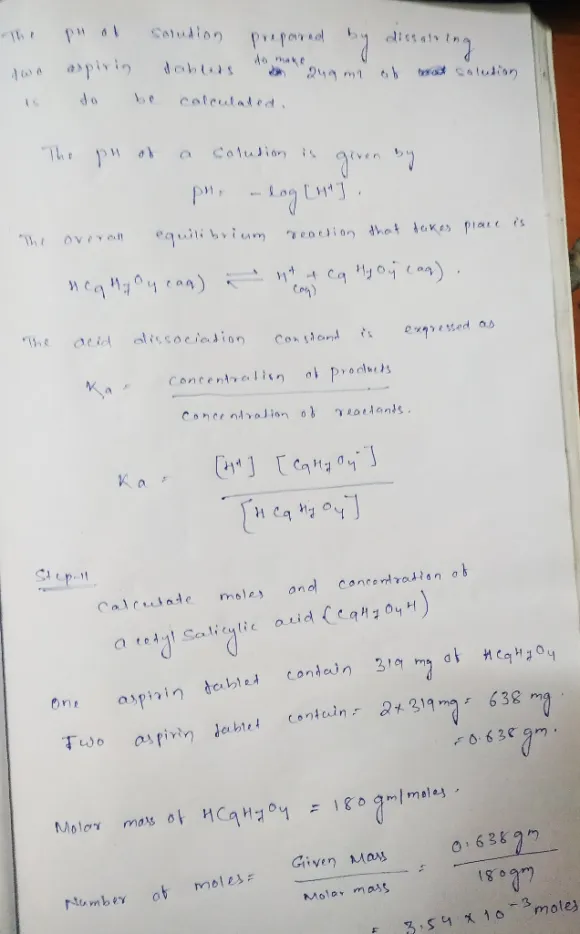 The pH of solution prepared by dissolving
two aspirin tablets to make 249 ml of solution
is to be calculated.
The pH of a solution is given by
pH = - log [H⁺].
The overall equilibrium reaction that takes place is
HC9H7O4 (aq) ⇌ H⁺(aq) + C9H7O4⁻ (aq).
The acid dissociation constant is expressed as
Ka = concentration of products / concentration of reactants.
Ka = [H⁺] [C9H7O4⁻] / [HC9H7O4]
Step-II
Calculate moles and concentration of
acetyl salicylic acid (C9H7O4H)
One aspirin tablet contain 319 mg of HC9H7O4
Two aspirin tablet contain = 2 x 319 mg = 638 mg.
= 0.638 gm.
Molar mass of HC9H7O4 = 180 gm/moles.
Number of moles = Given Mass / Molar mass = 0.638 gm / 180 gm
= 3.54 x 10⁻³ moles